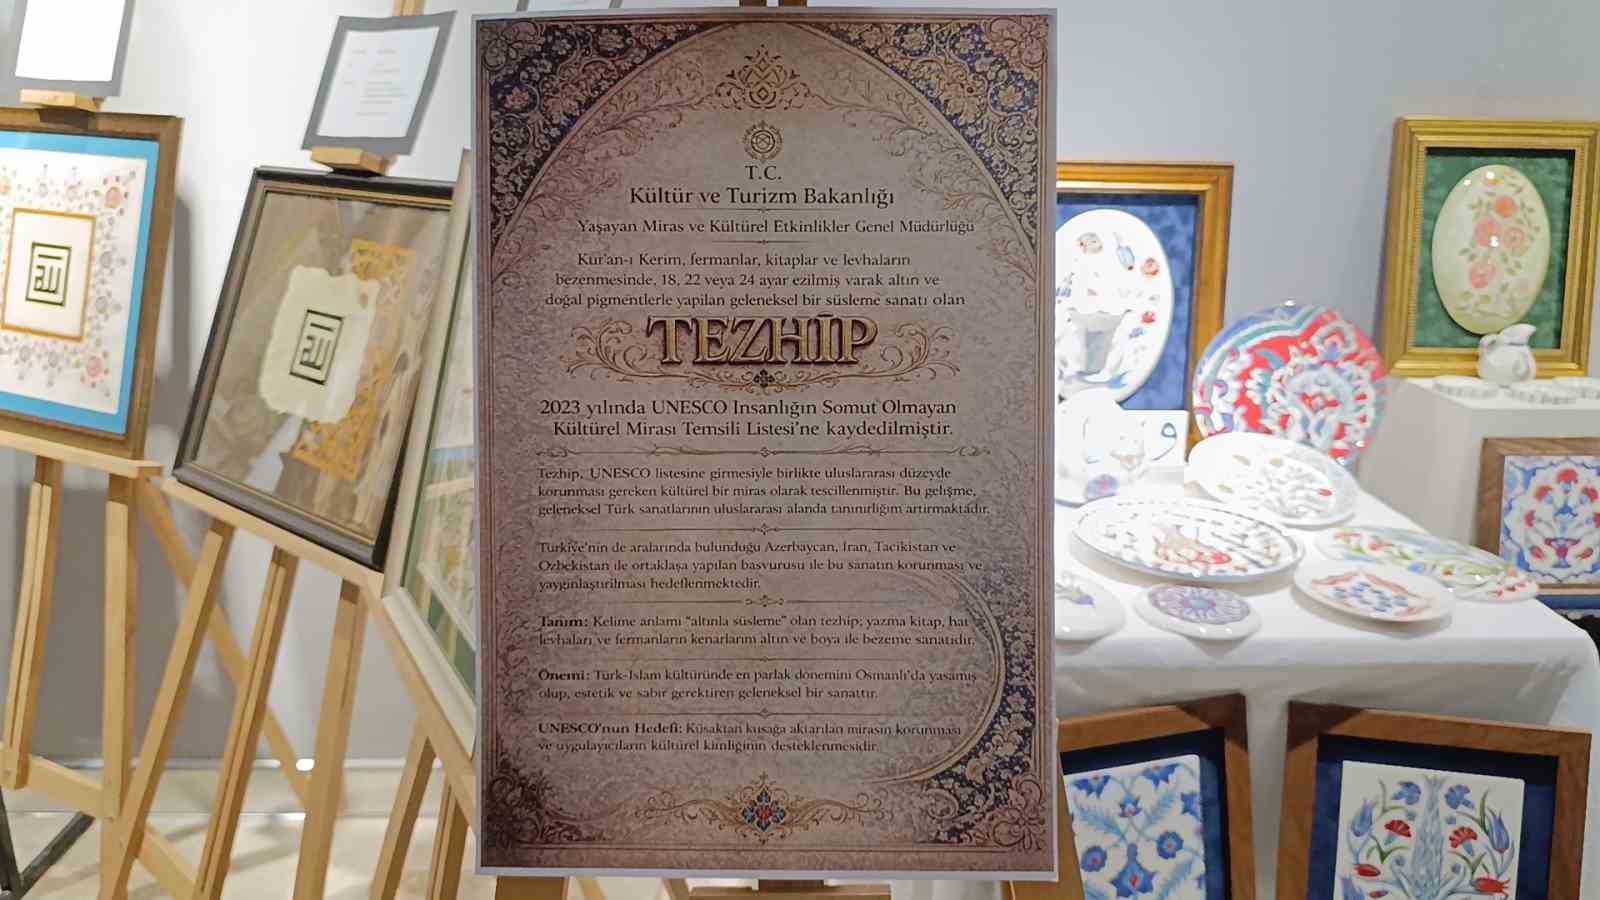 T.C.
Kültür ve Turizm Bakanlığı
Yaşayan Miras ve Kültürel Etkinlikler Genel Müdürlüğü
Kur'an-ı Kerim, fermanlar, kitaplar ve levhaların
bezenmesinde, 18, 22 veya 24 ayar ezilmiş varak altın ve
doğal pigmentlerle yapılan geleneksel bir süsleme sanatı olan
TEZHİP
2023 yılında UNESCO Insanlığın Somut Olmayan
Kültürel Mirası Temsili Listesi'ne kaydedilmiştir.
Tezhip, UNESCO listesine girmesiyle birlikte uluslararası düzeyde
korunması gereken kültürel bir miras olarak tescillenmiştir. Bu gelişme,
geleneksel Türk sanatlarının uluslararası alanda tanınırlığım artırmaktadır.
Türkiye'nin de aralarında bulunduğu Azerbaycan, Iran, Tacikistan ve
Özbekistan ile ortaklaşa yapılan basvurusu ile bu sanatın korunması ve
yaygınlaştırılması hedeflenmektedir.
Tanım: Kelime anlamı "altınla süsleme" olan tezhip; yazma kitap, hat
levhaları ve fermanların kenarlarını altın ve boya ile bezeme sanatıdır.
Önemi: Türk-Islam kültüründe en parlak dönemini Osmanlı'da yasamış
olup, estetik ve sabır gerektiren geleneksel bir sanattır.
UNESCO'nun Hedefi: Kuşaktan kusağa aktarılan mirasın korunması
ve uygulayıcıların kültürel kimliğinin desteklenmesidir.